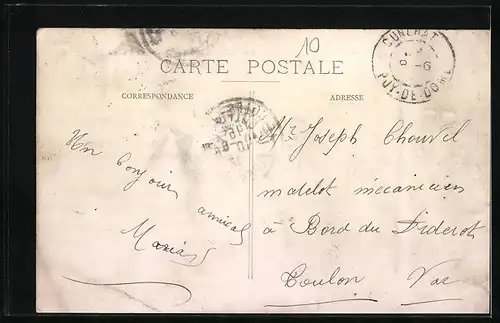 10
CUNLHAT
8 -6
PUY-DE-DOME
CARTE POSTALE
CORRESPONDANCE
ADRESSE
Un bonjour
amical
Maria
Mr Joseph Chouvel
matelot mécanicien
à Bord du Diderot
Toulon Var